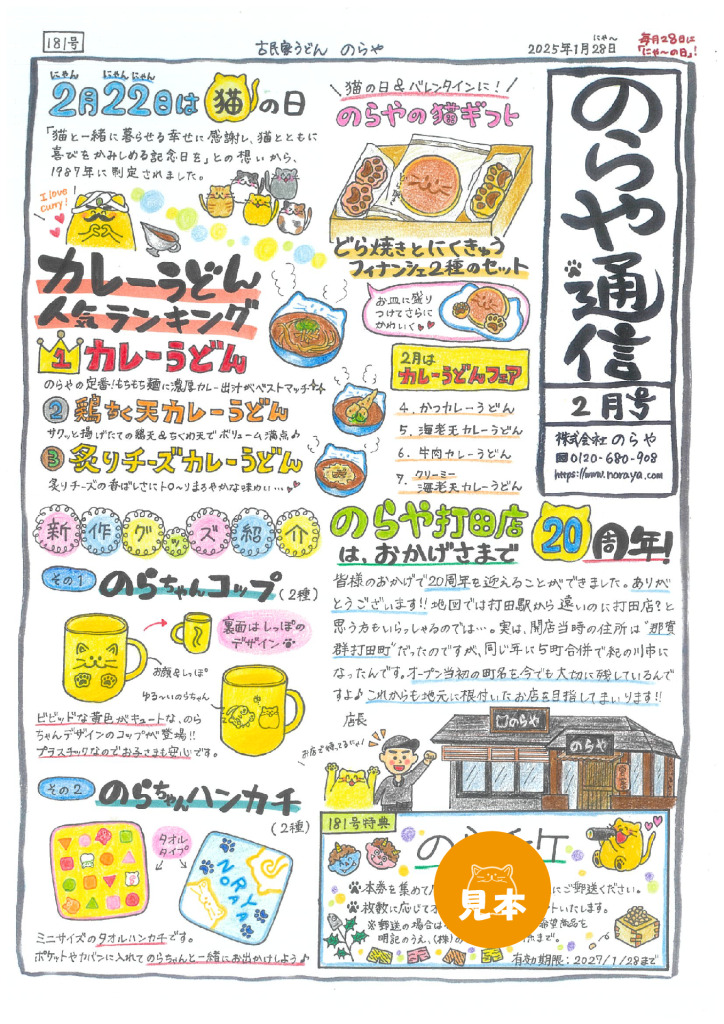 181号
古民家うどん のらや
2025年1月28日
にゃん
毎月28日は
「にゃ〜の日」!
のらや通信
2月号
株式会社 のらや
0120-680-908
https://www.noraya.com
にゃん にゃんにゃん
2月22日は猫の日
「猫と一緒に暮らせる幸せに感謝し、猫とともに
喜びをかみしめる記念日を」との想いから、
1987年に制定されました。
I love
curry!
猫の日&バレンタインに!
のらやの猫ギフト
どら焼きとにくきゅう
フィナンシェ2種のセット
お皿に盛り
つけてさらに
かわいく
カレーうどん
人気ランキング
1 カレーうどん
のらやの定番!もちもち麺に濃厚カレー出汁がベストマッチ
2 鶏ちく天カレーうどん
サクッと揚げたての鶏天&ちくわ天でボリューム満点♪
3 炙りチーズカレーうどん
炙りチーズの香ばしさにトロ〜りまろやかな味わい…
2月は
カレーうどんフェア
4. かつカレーうどん
5. 海老天カレーうどん
6. 牛肉カレーうどん
7. クリーミー
海老天カレーうどん
新作グッズ紹介
その1 のらちゃんコップ(2種)
裏面はしっぽの
デザイン
お顔&しっぽ
ゆる〜いのらちゃん
ビビッドな黄色がキュートな、のら
ちゃんデザインのコップが登場!!
プラスチックなのでお子さまも安心です。
その2 のらちゃんハンカチ
(2種)
タオル
タイプ
NORAYA
ミニサイズのタオルハンカチです。
ポケットやカバンに入れてのらちゃんと一緒にお出かけしよう♪
のらや打田店
は、おかげさまで
20周年!
皆様のおかげで20周年を迎えることができました。ありが
とうございます!!地図では打田駅から遠いのに打田店?と
思う方もいらっしゃるのでは…。実は、開店当時の住所は"那賀
群打田町"だったのですが、同じ年に5町合併で紀の川市に
なったんです。オープン当初の町名を今でも大切に残しているんで
すよ♪これからも地元に根付いたお店を目指してまいります!!
店長
お店で待ってるにゃ!
のらや
のらや
181号特典
見本
本券を集めて
にご郵送ください。
枚数に応じて
ートいたします。
※郵送の場合は
希望商品を
明記のうえ、(株)の
まで。
有効期限:2027/1/28まで